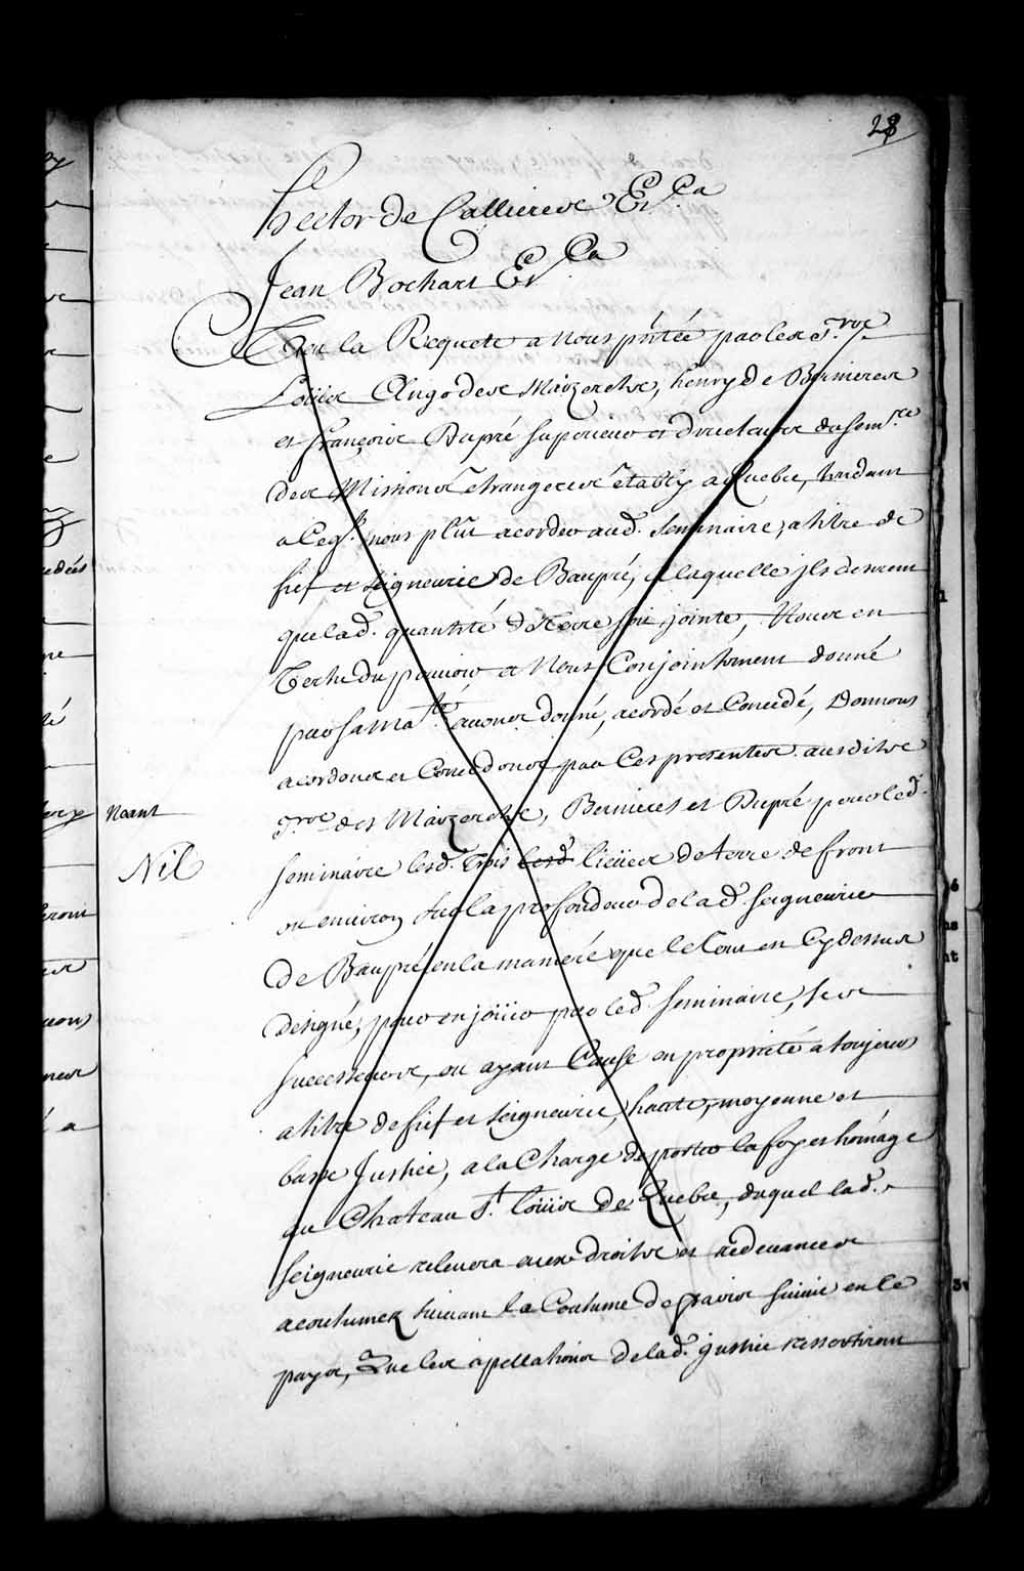 28
hector de Callieres Et.ca
Jean Bochart Et.ca
Veu la Requete a nous p'ntée par les S.rs
Loüis Ango des Maizerets, henry de Bernieres
et françois Dupré superieur et directeurs du sem.re
des Missions etrangeres etably a Quebec, tendant
a ce q.l nous plût acorder aud. Seminaire, a titre de
fief et seigneurie de Baupré, a laquelle jls desirent
que lad. quantité de Terre soit jointe, Nous en
Vertu du pouvoir a Nous Conjointement donné
par sa Ma.té avons donné, acordé et Concedé, Donnons
acordons et Concedons par Ces presentes ausdits
S.rs des Maizerets, Bernieres et Dupré pour led.
Neant
Nil
seminaire lesd. Trois lesd. lieües de terre de front
ou environ sur la profondeur de lad. seigneurie
de Baupré en la maniere que le tout en Cy dessus
designé, pour en joüir par led. seminaire, ses
successeurs, ou ayans Cause en proprieté a toujours
a titre de fief et seigneurie, haute, moyenne et
basse Justice, a la Charge de porter la foy et homage
au Chateau S.t Loüis de Quebec, duquel lad.
seigneurie relevera aux droits et redevances
acoutumez suivant la Coutume de paris suivie en ce
payis, Que les apellations de lad. justice ressortiront